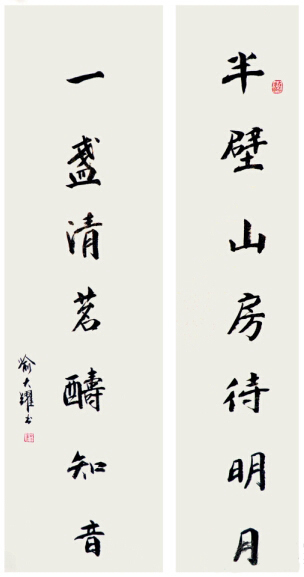 半壁山房待明月
一盏清茗酬知音
喻大耀书